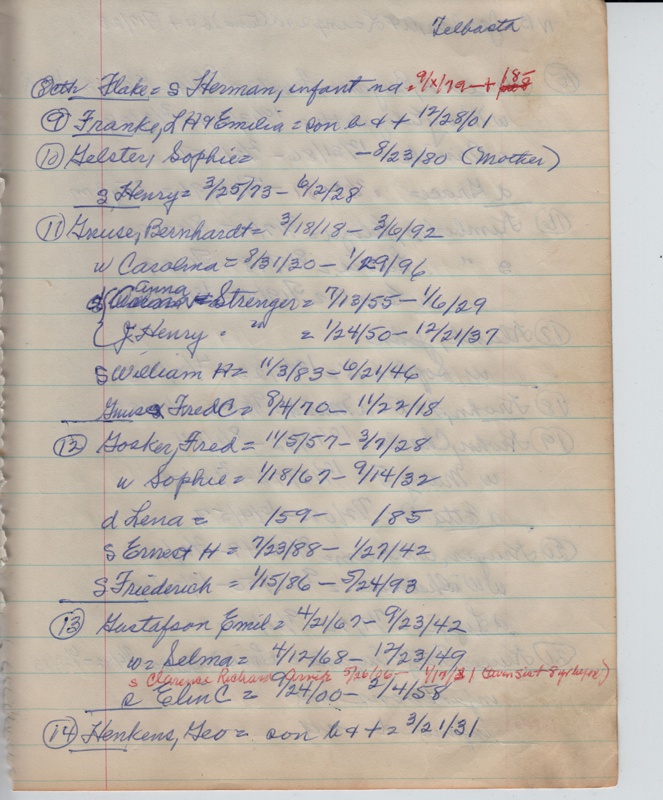 Telbasta
8 otto Flake = s Herman, infant nd = 9/x/79 - + 185
9 Franke, L H & Emilia = son b & + 12/28/01
10 Gelster, Sophie = - 8/23/80 (Mother)
s Henry = 3/25/73 - 6/2/28
11 Gnuse, Bernhardt = 3/18/18 - 3/6/92
w Carolina = 8/31/30 - 1/29/96
anna
d Strenger = 7/13/55 - 1/6/29
J. Henry = " = 1/24/50 - 12/21/37
s William H = 11/3/83 - 6/21/46
Gnuse Fred C = 8/4/70 - 11/22/18
12 Gosker, Fred = 11/5/57 - 3/7/28
w Sophie = 1/18/67 - 9/14/32
d Lena = 159 - 185
s Ernest H = 7/23/88 - 1/27/42
s Friederich = 1/15/86 - 5/24/93
13 Gustafson Emil = 4/21/67 - 9/23/42
w = Selma = 4/12/68 - 12/23/49
s Clarence Richard 5/26/06 -
s Elin C = 9/24/00 - 2/4/58
14 Henkens, Geo = son b & + = 3/21/31